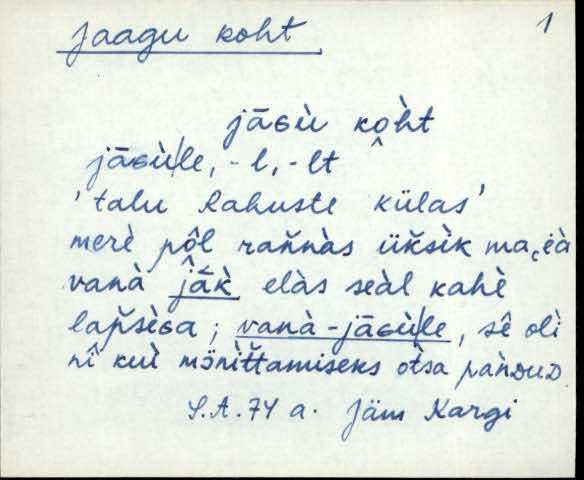 jaagu koht
1
jāɢù kò̭ht
jāɢù|le, -l, -lt
'talu Lahuste külas'
merè pôl rañnàs üǩsìk ma, ëà
vanà jā̂̀k elàs seàl kahè
lap̌sèɢa; vanà-jāɢù|le, sê olì
nî kuì mȯ̈nìťtamiseks òtsa pànᴅuᴅ
S.A. 74 a. Jäm Kargi